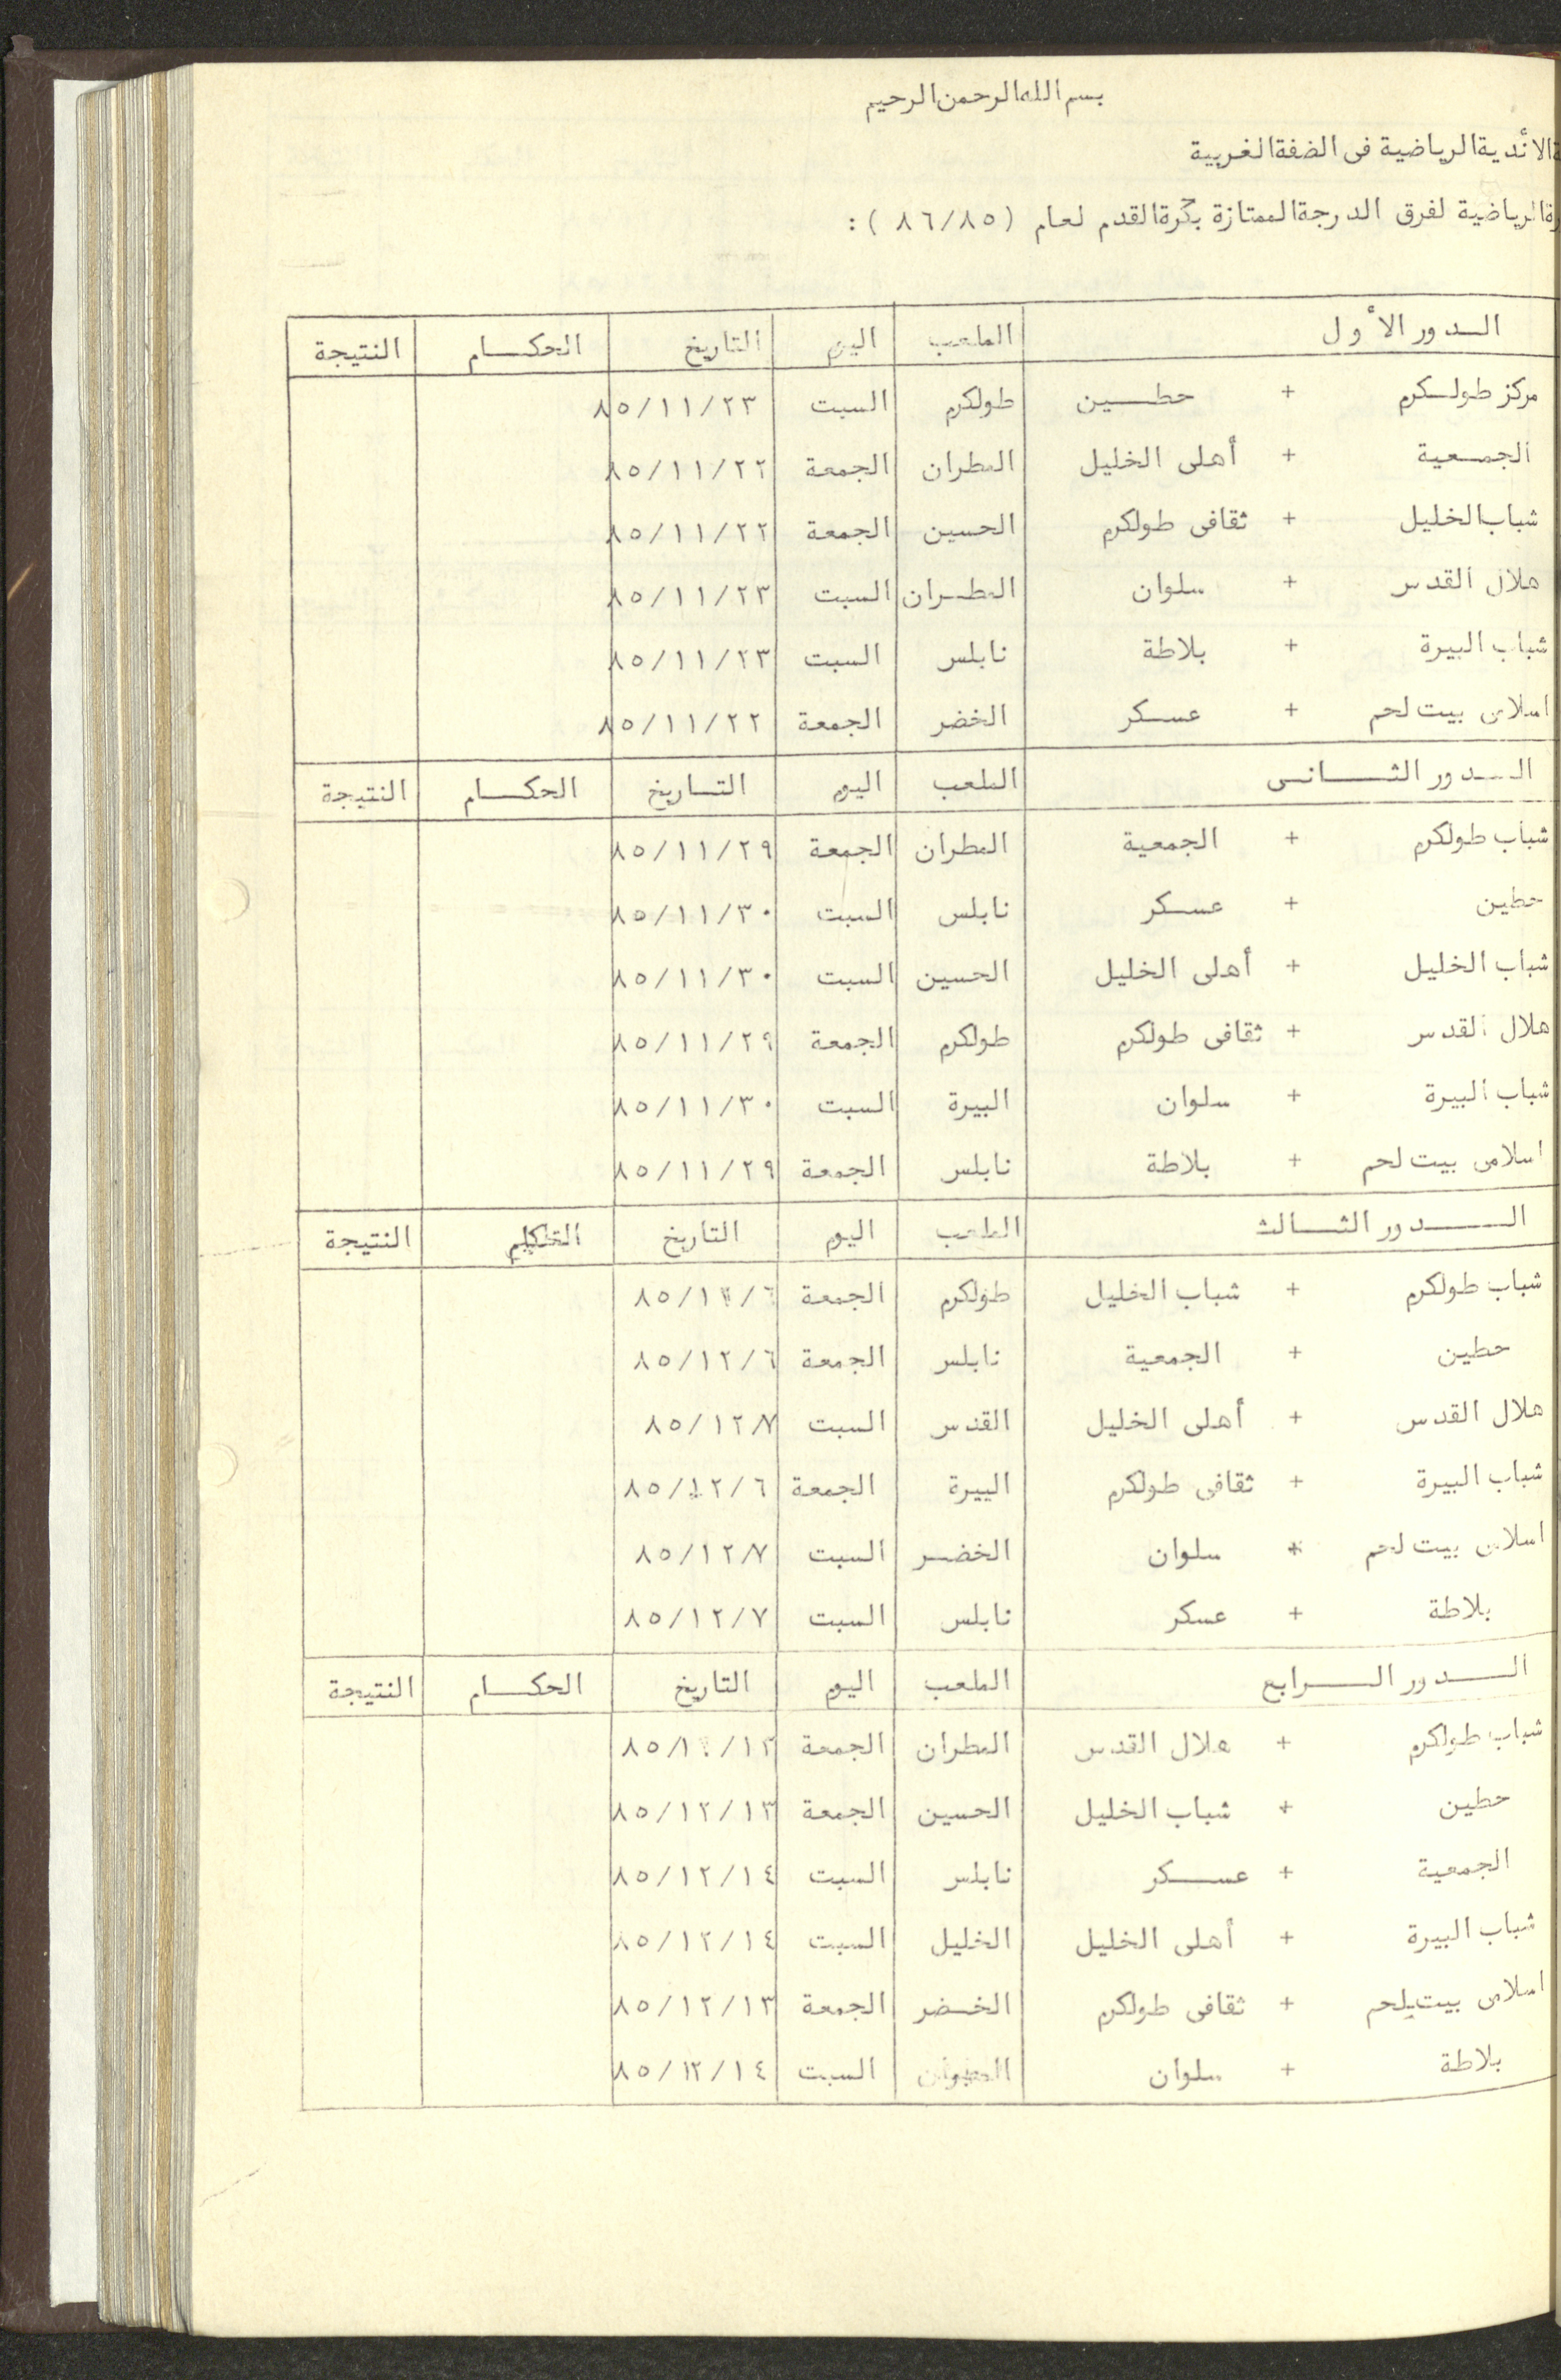 بسم الله الرحمن الرحيم
الأندية الرياضية فى الضفة الغربية
الرياضية لفرق الدرجة الممتازة بكرة القدم لعام (٨٦/٨٥) :
الـدور الأول الملعب اليوم التاريخ الحكـــام النتيجة
مركز طولـكرم + حطـــين طولكرم السبت ٨٥/١١/٢٣
الجمـعية + أهلى الخليل المطران الجمعة ٨٥/١١/٢٢
شباب الخليل + ثقافى طولكرم الحسين الجمعة ٨٥/١١/٢٢
هلال القدس + سلوان المطـران السبت ٨٥/١١/٢٣
شباب البيرة + بلاطة نابلس السبت ٨٥/١١/٢٣
اسلامى بيت لحم + عسـكر الخضر الجمعة ٨٥/١١/٢٢
الـدور الثـــانى الملعب اليوم التـاريخ الحكـــام النتيجة
شباب طولكرم + الجمعية المطران الجمعة ٨٥/١١/٢٩
حطين + عسـكر نابلس السبت ٨٥/١١/٣٠
شباب الخليل + أهلى الخليل الحسين السبت ٨٥/١١/٣٠
هلال القدس + ثقافى طولكرم طولكرم الجمعة ٨٥/١١/٢٩
شباب البيرة + سلوان البيرة السبت ٨٥/١١/٣٠
اسلامى بيت لحم + بلاطة نابلس الجمعة ٨٥/١١/٢٩
الـــدور الثـــالث الملعب اليوم التاريخ النتيجة
شباب طولكرم + شباب الخليل طولكرم الجمعة ٨٥/١٢/٦
حطين + الجمعية نابلس الجمعة ٨٥/١٢/٦
هلال القدس + أهلى الخليل القدس السبت ٨٥/١٢/٧
شباب البيرة + ثقافى طولكرم البيرة الجمعة ٨٥/١٢/٦
اسلامى بيت لحم + سلوان الخضـر السبت ٨٥/١٢/٧
بلاطة + عسكر نابلس السبت ٨٥/١٢/٧
الـــدور الـــرابع الملعب اليوم التاريخ الحكـــام النتيجة
شباب طولكرم + هلال القدس المطران الجمعة ٨٥/١٢/١٣
حطين + شباب الخليل الحسين الجمعة ٨٥/١٢/١٣
الجمعية + عســـكر نابلس السبت ٨٥/١٢/١٤
شباب البيرة + أهلى الخليل الخليل السبت ٨٥/١٢/١٤
اسلامى بيت لحم + ثقافى طولكرم الخـضر الجمعة ٨٥/١٢/١٣
بلاطة + سلوان السبت ٨٥/١٢/١٤